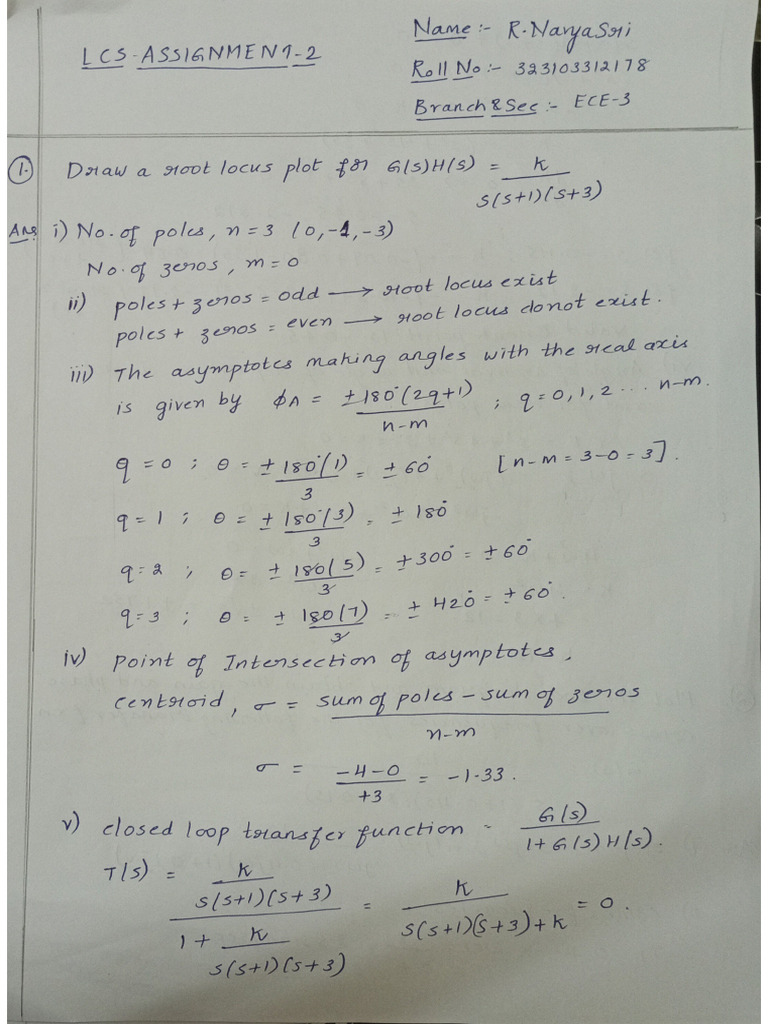 LCS-ASSIGNMENT-2
Name :- R.NavyaSri
Roll No :- 323103312178
Branch & Sec :- ECE-3
1. Draw a root locus plot for G(s)H(s) = K / s(s+1)(s+3)
Ans i) No. of poles, n = 3 (0, -1, -3)
No. of zeros, m = 0
ii) poles + zeros = odd → root locus exist
poles + zeros = even → root locus donot exist.
iii) The asymptotes making angles with the real axis
is given by ϕA = ±180°(2q+1) / n-m ; q = 0, 1, 2 ... n-m.
q = 0 ; θ = ±180°(1) / 3 = ±60° [n-m = 3-0 = 3].
q = 1 ; θ = ±180°(3) / 3 = ±180°
q = 2 ; θ = ±180(5) / 3 = ±300° = ±60°
q = 3 ; θ = ±180(7) / 3 = ±420° = ±60°.
iv) Point of Intersection of asymptotes,
centroid, σ = sum of poles - sum of zeros / n-m
σ = -4-0 / +3 = -1.33.
v) closed loop transfer function = G(s) / 1+G(s)H(s).
T(s) = K / s(s+1)(s+3) / 1 + K / s(s+1)(s+3) = K / s(s+1)(s+3)+K = 0.